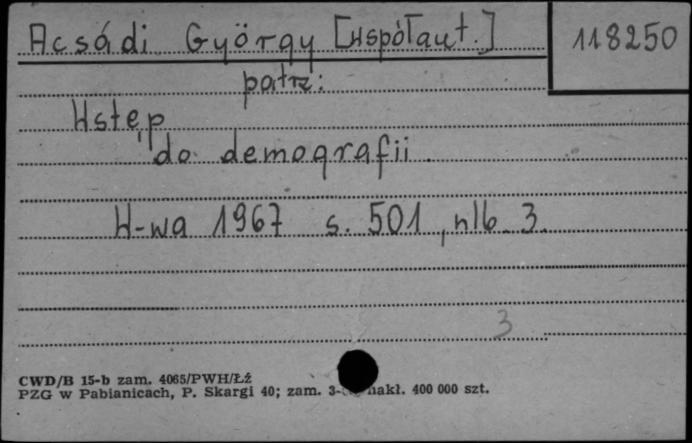 Acsádi György [współaut.] 118250
patrz:
Wstęp
do demografii.
W-wa 1967 s. 501, nlb 3.
3
CWD/B 15-b zam. 4065/PWH/Łź
PZG w Pabianicach, P. Skargi 40; zam. nakł. 400 000 szt.